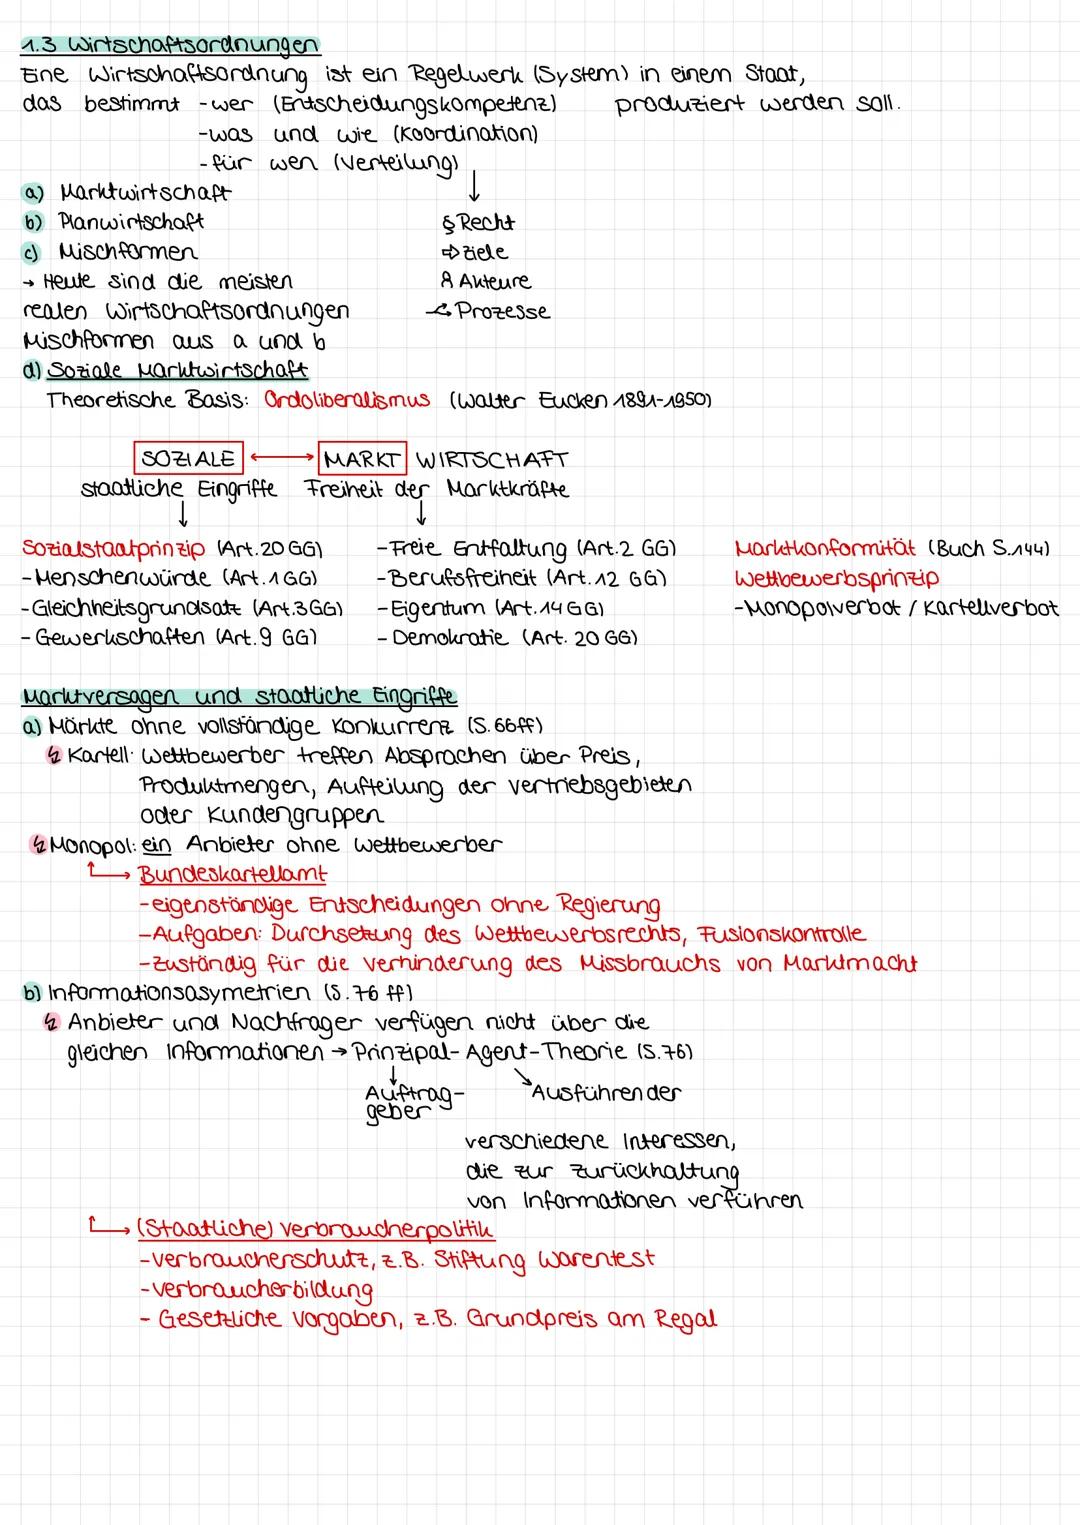 1.3 Wirtschaftsordnungen
Eine Wirtschaftsordnung ist ein Regelwerk (System) in einem Staat,
das bestimmt -wer (Entscheidungskompetenz) produziert werden soll.
-was und wie (Koordination)
-für wen (Verteilung)
a) Marktwirtschaft
b) Planwirtschaft § Recht
c) Mischformen ⇨ Ziele
→ Heute sind die meisten Akteure
realen Wirtschaftsordnungen Prozesse
Mischformen aus a und b
d) Soziale Marktwirtschaft
Theoretische Basis: Ordoliberalismus (Walter Eucken 1891-1950)
SOZIALE ↔ MARKT WIRTSCHAFT
staatliche Eingriffe Freiheit der Marktkräfte
↓ ↓
Sozialstaatprinzip (Art.20 GG) -Freie Entfaltung (Art.2 GG) Marktkonformität (Buch S.144)
-Menschenwürde (Art.1 GG) -Berufsfreiheit (Art.12 GG) Wettbewerbsprinzip
-Gleichheitsgrundsatz (Art.3 GG) -Eigentum (Art.14 GG) -Monopolverbot / Kartellverbot
-Gewerkschaften (Art.9 GG) -Demokratie (Art. 20 GG)
Marktversagen und staatliche Eingriffe
a) Märkte ohne vollständige Konkurrenz (S.66ff)
Kartell: Wettbewerber treffen Absprachen über Preis,
Produktmengen, Aufteilung der Vertriebsgebieten
oder Kundengruppen
Monopol: ein Anbieter ohne Wettbewerber
→ Bundeskartellamt
-eigenständige Entscheidungen ohne Regierung
-Aufgaben: Durchsetzung des Wettbewerbsrechts, Fusionskontrolle
-Zuständig für die Verhinderung des Missbrauchs von Marktmacht
b) Informationsasymetrien (S.76 ff)
Anbieter und Nachfrager verfügen nicht über die
gleichen Informationen → Prinzipal-Agent-Theorie (S.76)
Auftrag- Ausführender
geber
verschiedene Interessen,
die zur Zurückhaltung
von Informationen verführen
→ (Staatliche) Verbraucherpolitik
-Verbraucherschutz, z.B. Stiftung Warentest
-Verbraucherbildung
- Gesetzliche Vorgaben, z.B. Grundpreis am Regal